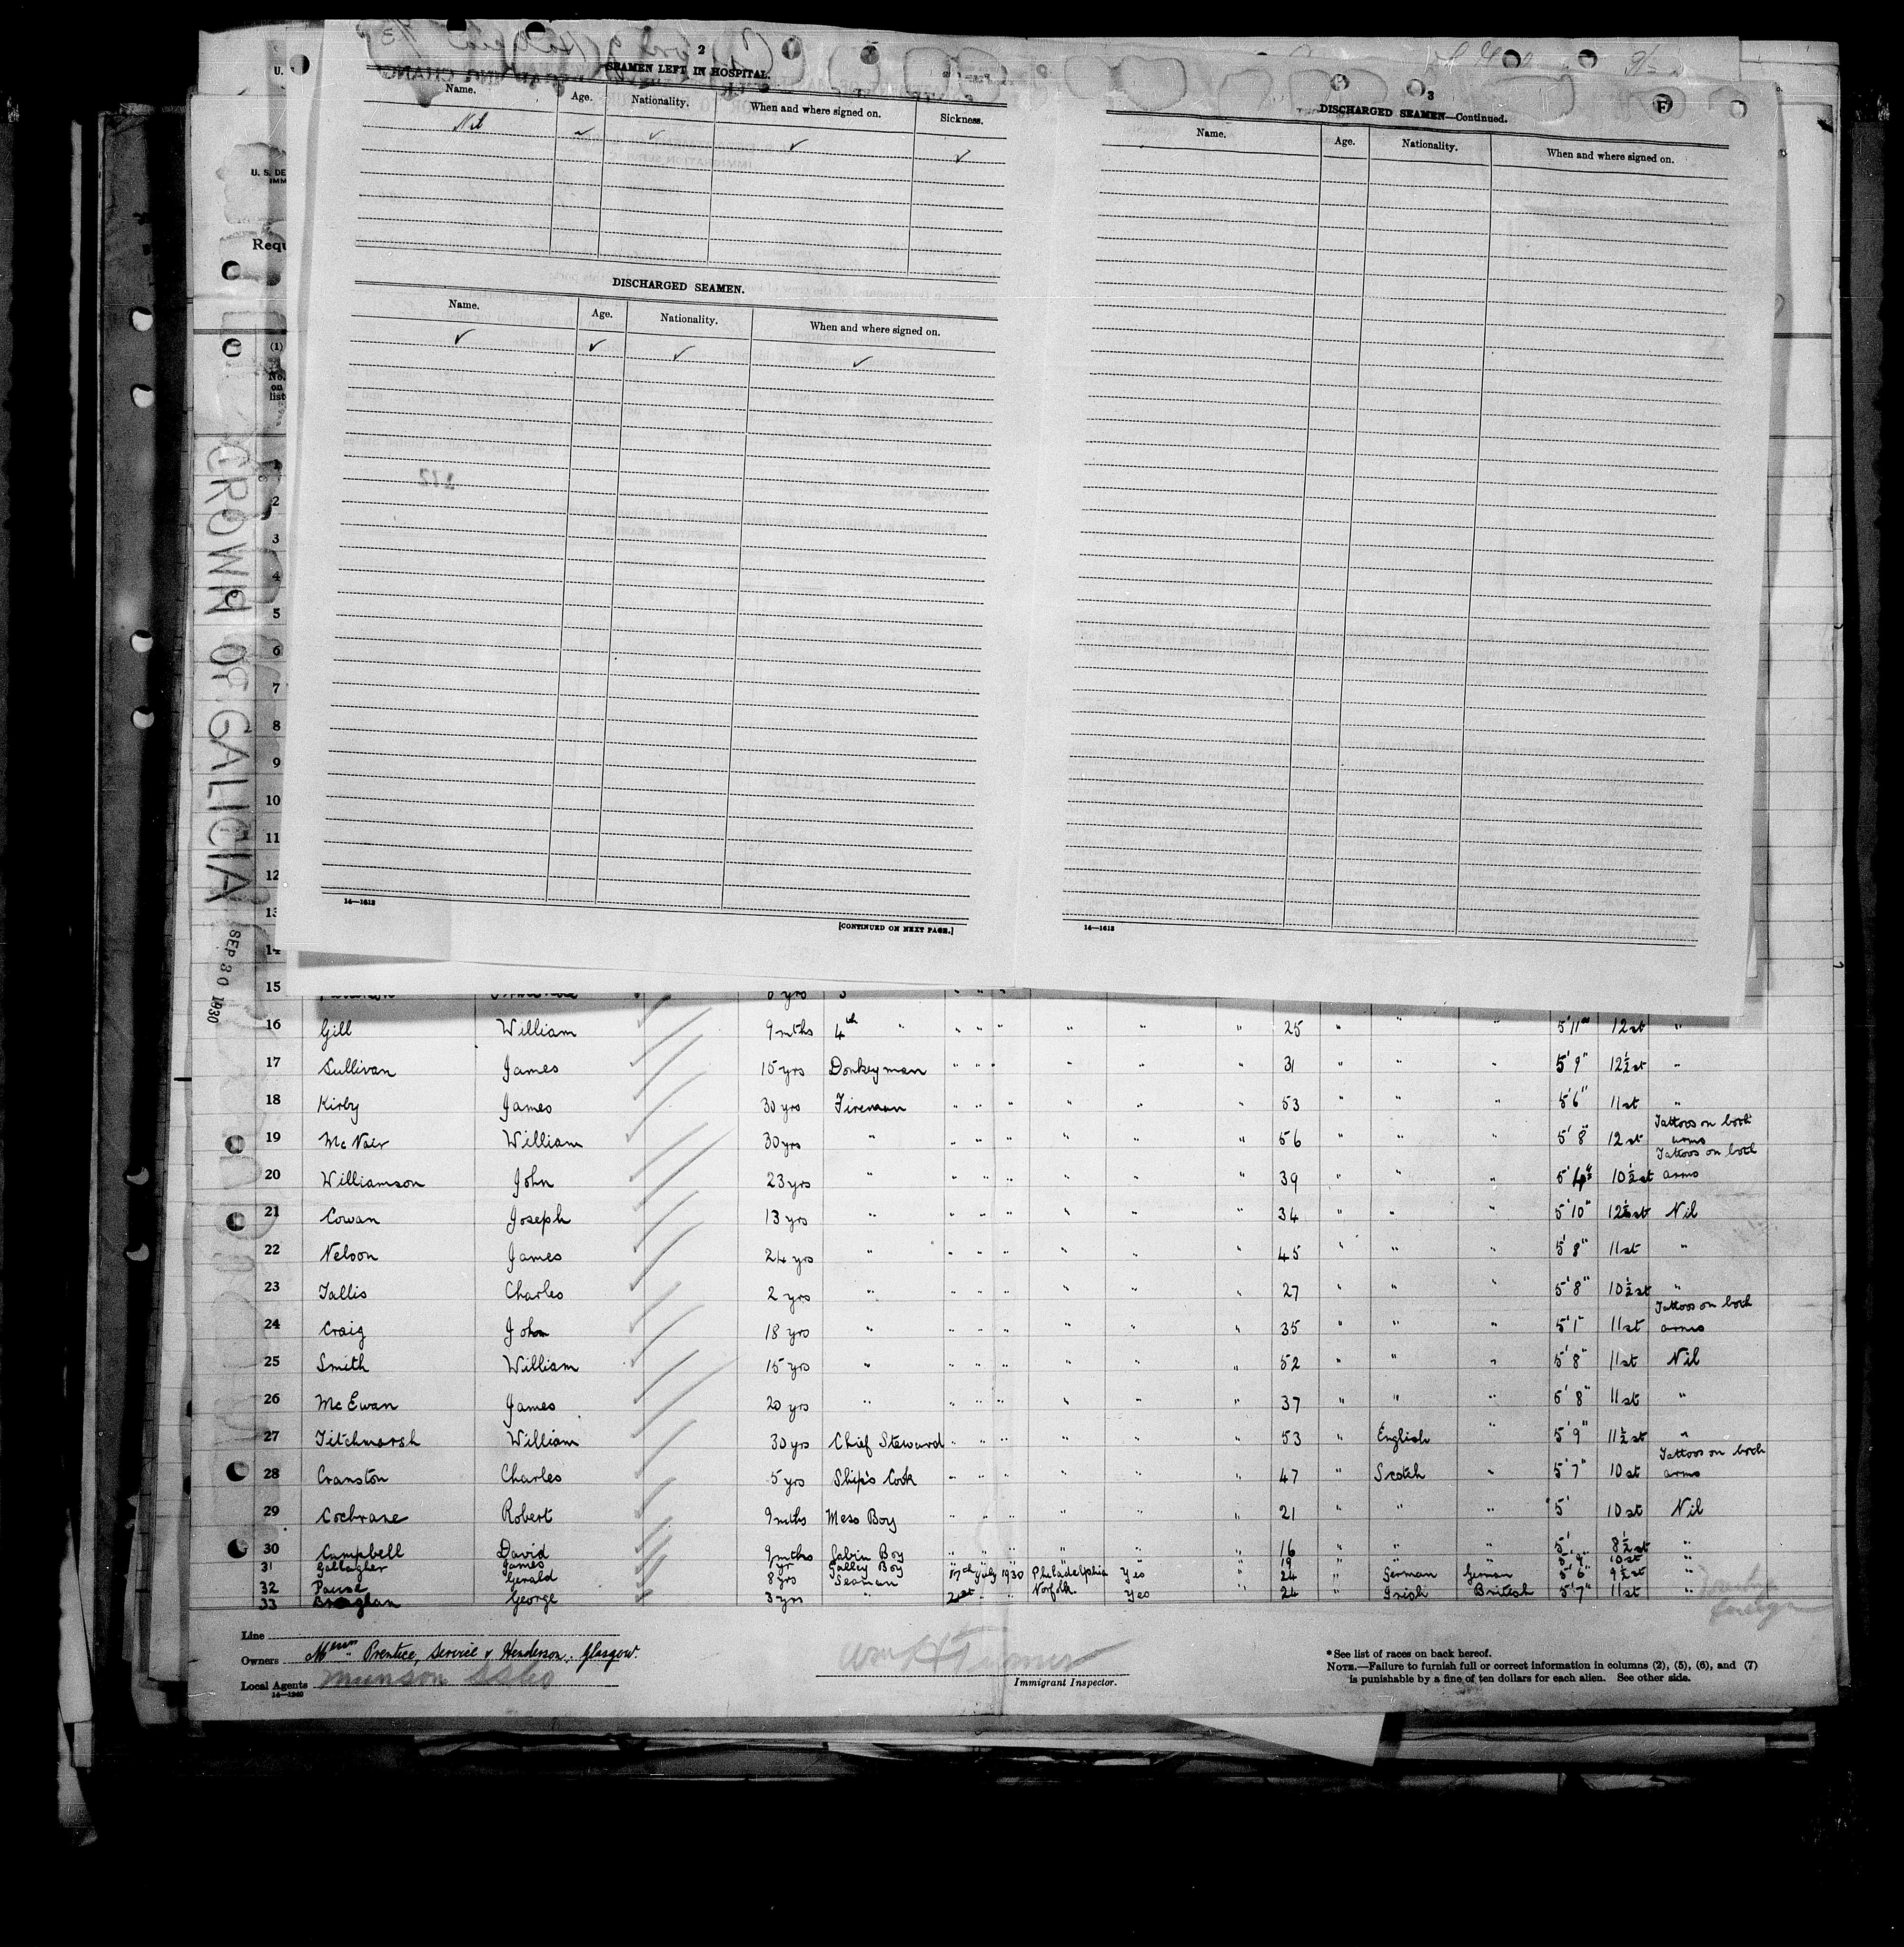 2
SEAMEN LEFT IN HOSPITAL.
Name. Age. Nationality. When and where signed on. Sickness.
Nil ✓ ✓ ✓ ✓
DISCHARGED SEAMEN.
Name. Age. Nationality. When and where signed on.
✓ ✓ ✓ ✓
14—1613
[CONTINUED ON NEXT PAGE.]
3
DISCHARGED SEAMEN—Continued.
F
Name. Age. Nationality. When and where signed on.
14—1613
U.
U. S. DE
IMM
Requ
(1)
No.
on
list
CROWN OF GALICIA
SEP 30 1930
1
2
3
4
5
6
7
8
9
10
11
12
13
14
15 yrs 3 " " "
16 Gill William 9 mths 4th " " " " " " " 25 " " " 5' 11" 12 st "
17 Sullivan James 15 yrs Donkeyman " " " " " " 31 " " " 5' 9" 12½ st "
18 Kirby James 30 yrs Fireman " " " " " " 53 " " " 5' 6" 11 st "
19 McNair William 30 yrs " " " " " " " 56 " " " 5' 8" 12 st Tattoos on both arms
20 Williamson John 23 yrs " " " " " " " 39 " " " 10½ st Tattoos on both arms
21 Cowan Joseph 13 yrs " " " " " " " 34 " " " 5' 10" Nil
22 Nelson James 24 yrs " " " " " " " 45 " " " 5' 8" 11 st "
23 Tallis Charles 2 yrs " " " " " " " 27 " " " 5' 8" 10½ st "
24 Craig John 18 yrs " " " " " " " 35 " " " 5' 1" 11 st Tattoos on both arms
25 Smith William 15 yrs " " " " " " " 52 " " " 5' 8" 11 st Nil
26 McEwan James 20 yrs " " " " " " " 37 " " " 5' 8" 11 st "
27 Titchmarsh William 30 yrs Chief Steward " " " " " " 53 " English " 5' 9" 11½ st "
28 Cranston Charles 5 yrs Ship's Cook " " " " " " 47 " Scotch " 5' 7" 10 st Tattoos on both arms
29 Cochrane Robert 9 mths Mess Boy " " " " " " 21 " " " 5' 10 st Nil
30 Campbell David 9 mths Cabin Boy " " " " " " 16 " " " 5' 8½ st "
31 Gallagher James 1 yr Galley Boy " " " " " " 19 " " " 10 st "
32 Gerald 8 yrs Seaman 17th July 1930 Philadelphia Yes " 24 " German German 5' 6" 9½ st "
33 George 3 yrs " 21st " " Norfolk Yes " 24 " Irish British 5' 7" 11 st "
Line
Owners Messrs Prentice, Service & Henderson, Glasgow.
Local Agents Munson SS Co
14—1240
Wm H Turner
Immigrant Inspector.
* See list of races on back hereof.
NOTE.—Failure to furnish full or correct information in columns (2), (5), (6), and (7)
is punishable by a fine of ten dollars for each alien. See other side.
foreign